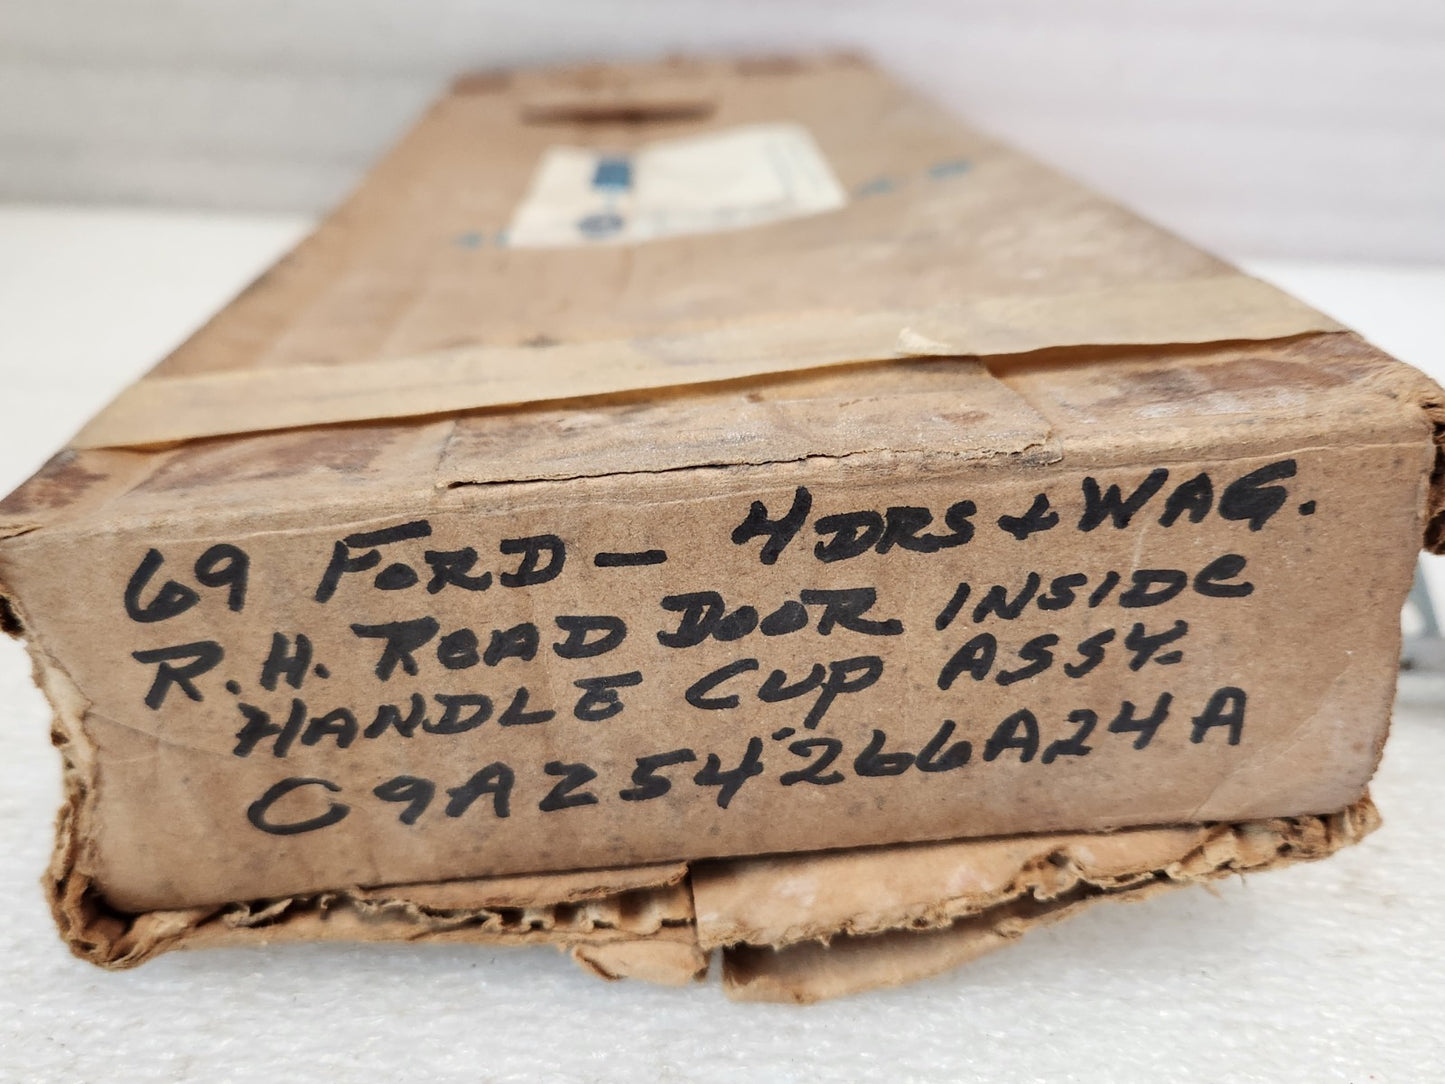 69 FORD - 4 DRS + WAG.
R.H. READ DOOR INSIDE
HANDLE CUP ASSY.
C9AZ54266A24A